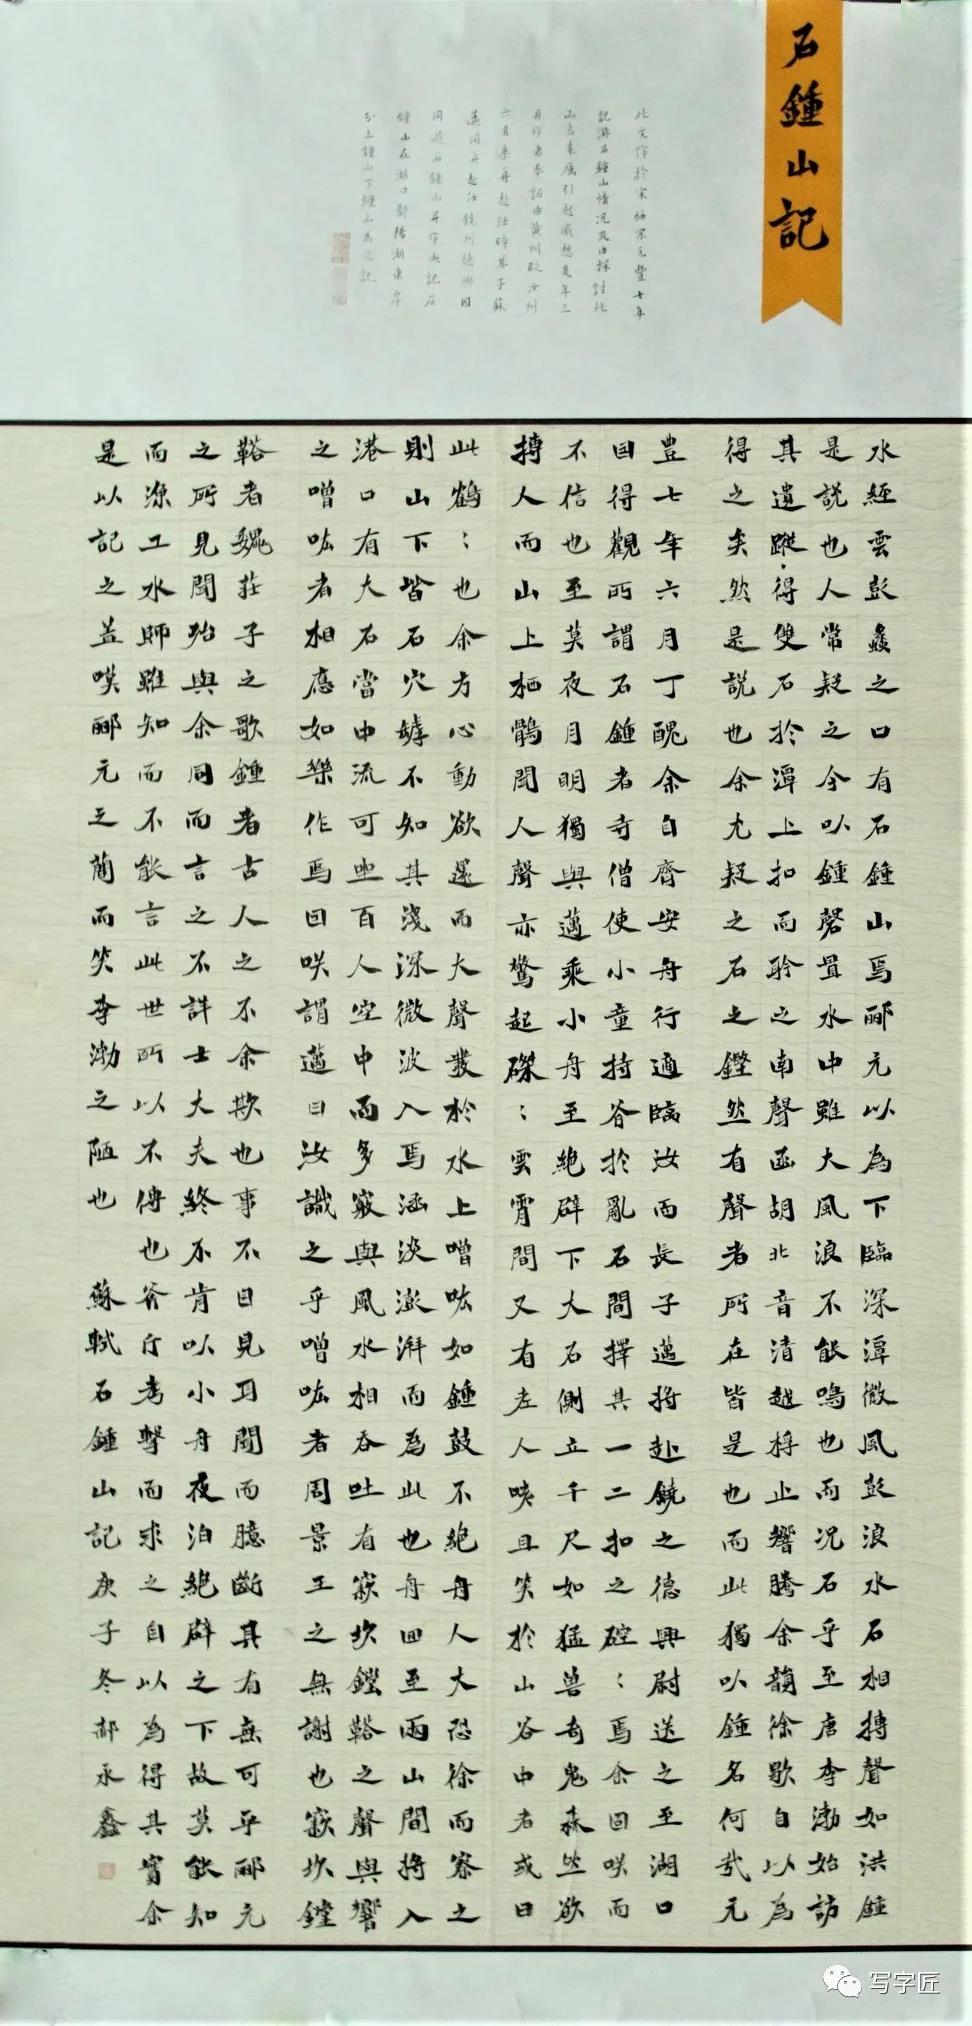 石鍾山記
此文作於宋神宗元豐七年
記游石鍾山情況及由探討此
山名來歷引起感想是年三
月作者奉詔由黃州改汝州
六月乘舟赴任時其子蘇
邁同舟赴任饒州德興因
同遊石鍾山并作此記石
鍾山在湖口鄱陽湖東岸
分上鍾山下鍾山為之記
水經雲彭蠡之口有石鍾山焉酈元以為下臨深潭微風彭浪水石相搏聲如洪鍾
是說也人常疑之今以鍾磬置水中雖大風浪不能鳴也而況石乎至唐李渤始訪
其遺蹤得雙石於潭上扣而聆之南聲函胡北音清越桴止響騰余韻徐歇自以為
得之矣然是說也余尤疑之石之鏗然有聲者所在皆是也而此獨以鍾名何哉元
豊七年六月丁醜余自齊安舟行適臨汝而長子邁將赴饒之德興尉送之至湖口
因得觀所謂石鍾者寺僧使小童持斧於亂石間擇其一二扣之硿:焉余固咲而
不信也至莫夜月明獨與邁乘小舟至絕辟下大石側立千尺如猛獸奇鬼森然欲
搏人而山上栖鶻聞人聲亦驚起磔:雲霄間又有老人咳且笑於山谷中者或曰
此鶴:也余方心動欲還而大聲發於水上噌吰如鍾鼓不絕舟人大恐徐而察之
則山下皆石穴罅不知其淺深微波入焉涵淡澎湃而為此也舟迴至兩山間將入
港口有大石當中流可坐百人空中而多竅與風水相吞吐有窾坎鏜鞳之聲與響
之噌吰者相應如樂作焉因咲謂邁曰汝識之乎噌吰者周景王之無謝也窾坎鏜
鞳者魏莊子之歌鍾者古人之不余欺也事不目見耳聞而臆斷其有無可乎酈元
之所見聞殆與余同而言之不詳士大夫終不肯以小舟夜泊絕辟之下故莫能知
而漁工水師雖知而不能言此世所以不傳也斧斤考擊而求之自以為得其實余
是以記之蓋嘆酈元之簡而笑李渤之陋也 蘇軾石鍾山記庚子冬郝永鑫
写字匠